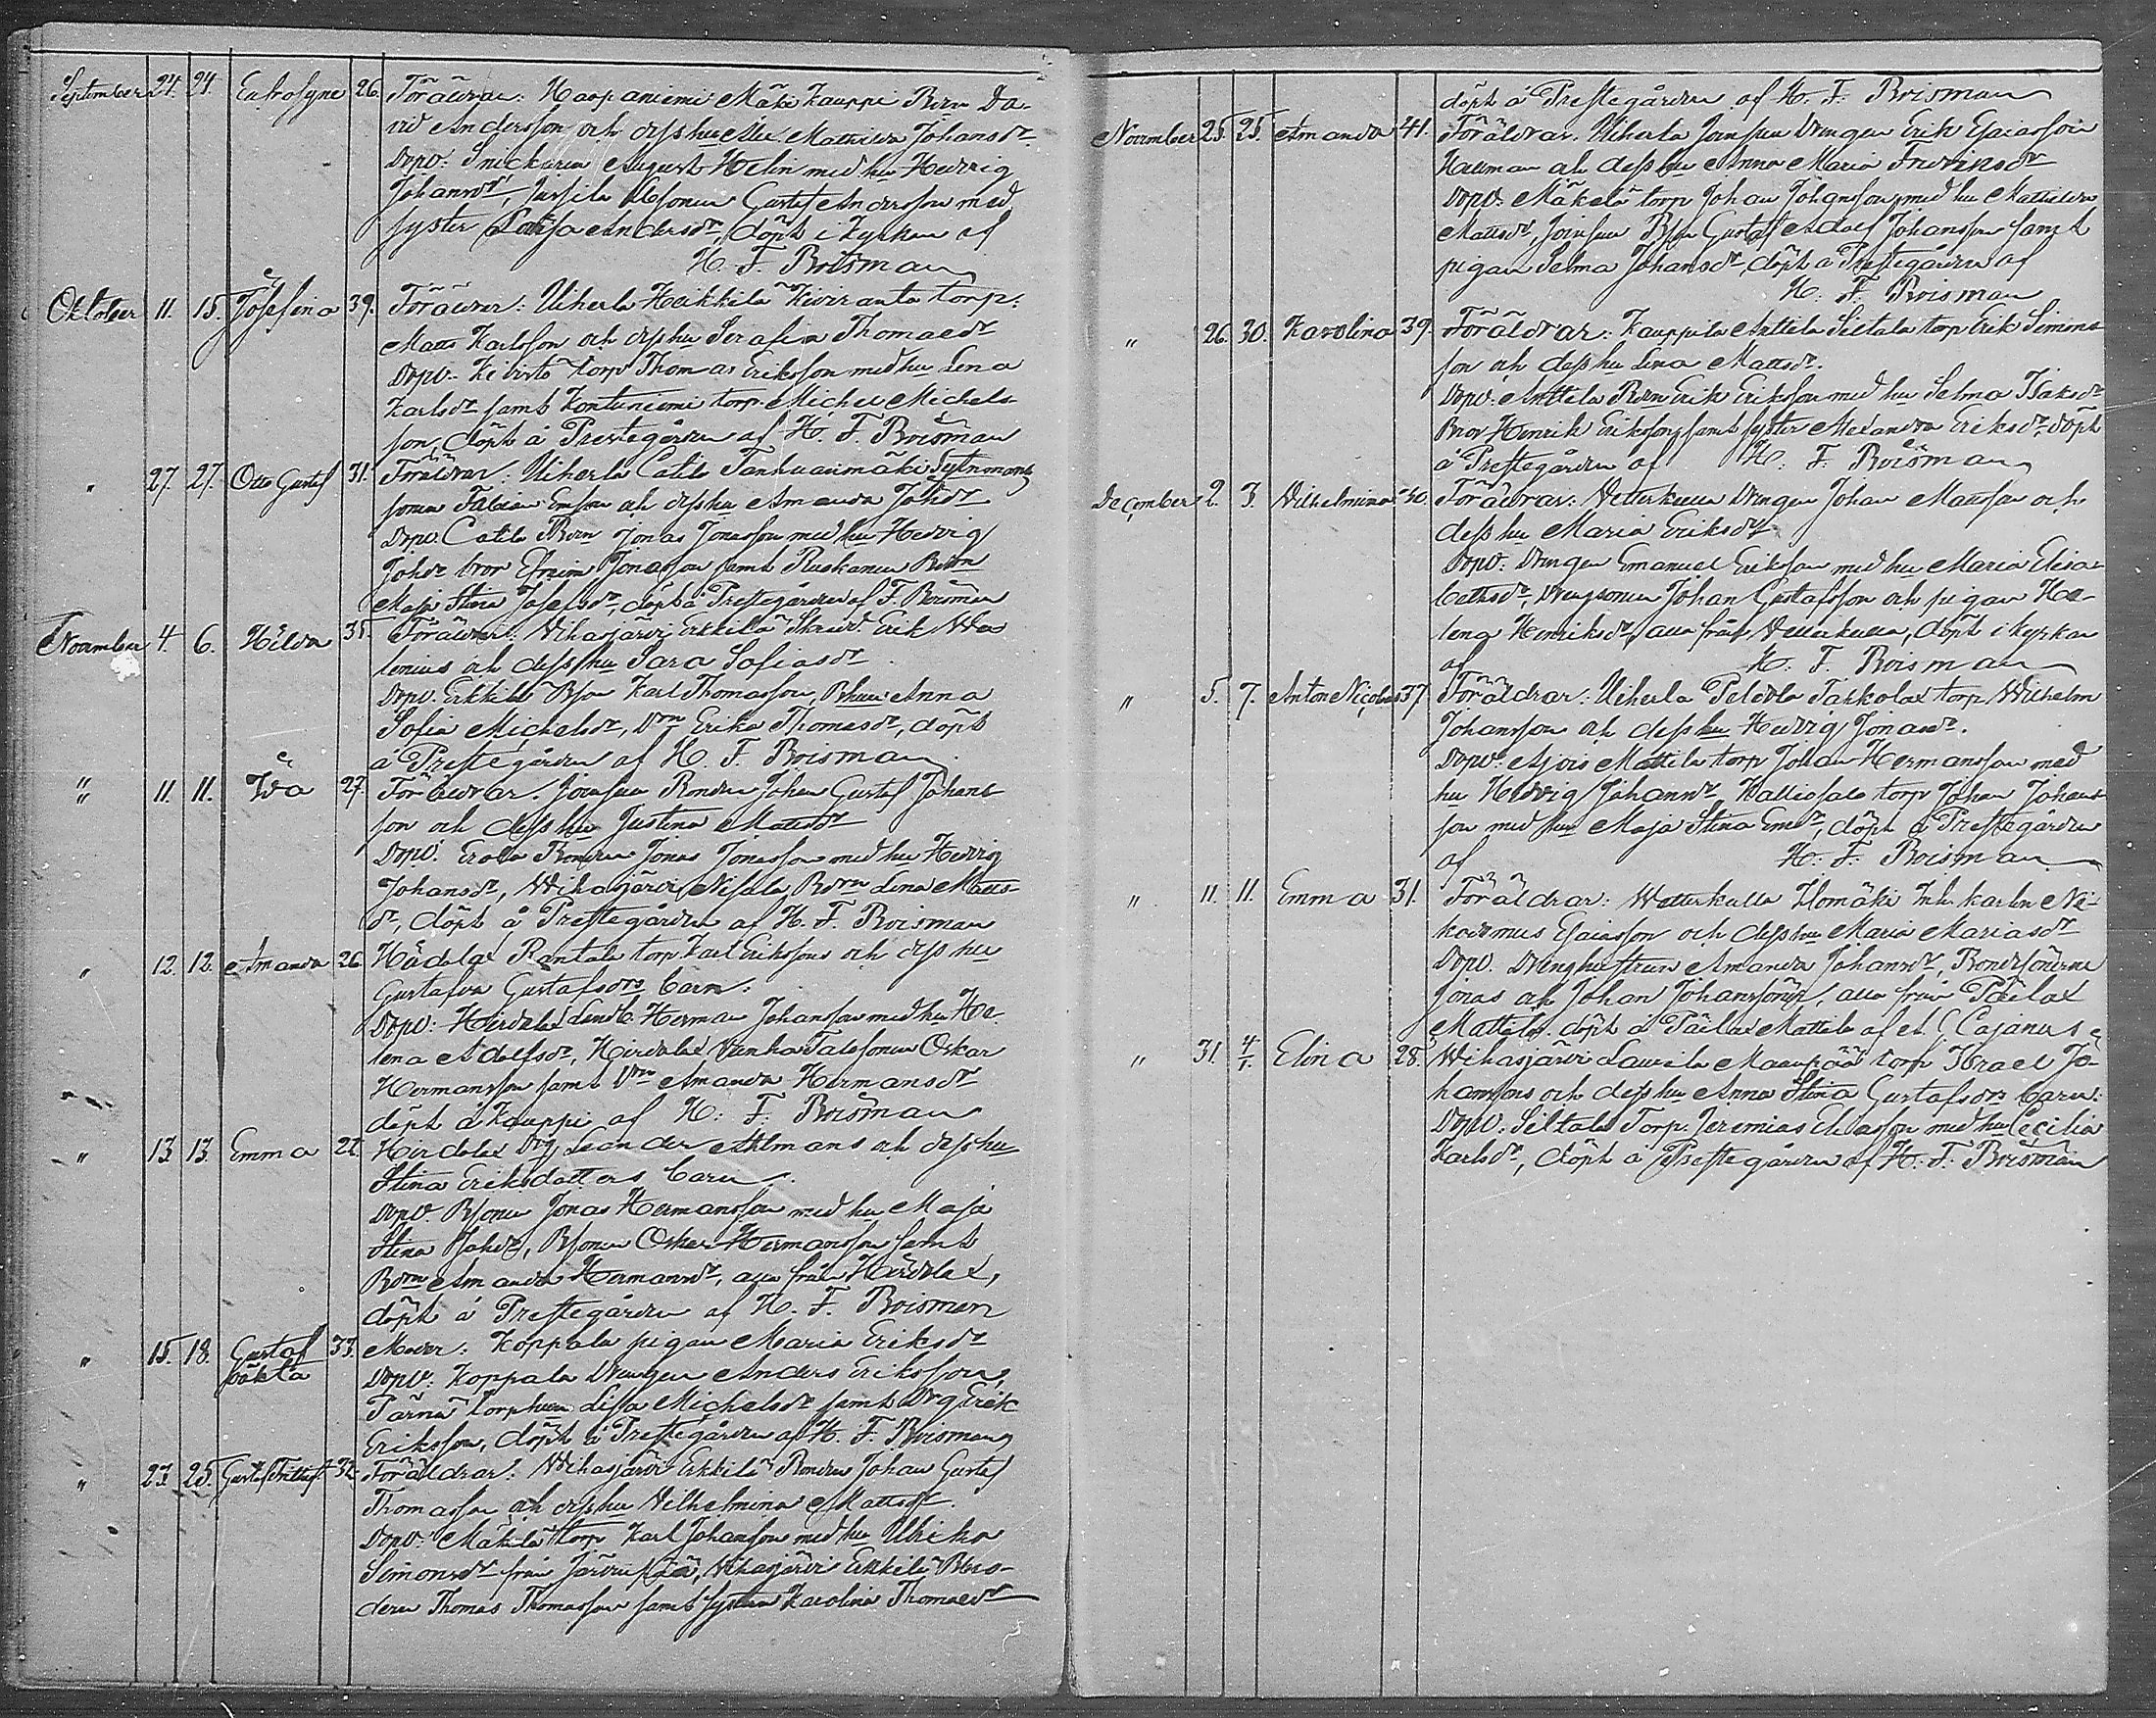 September 24. 24. 26. Föräldrar: Haapaniemi Mäki Kauppi Bdn Da-
vid Andersson och dess hu Mathilda Johansdr
Dopv: Snickaren August Helin med hu Hedvig
Johansdr, Jussila Gustaf Andersson med
syster Lovisa Andersdr, döpt i Kyrkan af
H. F. Boisman
Oktober 11. 15. Josefina 39. Föräldrar: Uiherla Heikkilä Kiviranta torp.
Matts Karlsson och dess hu Serafia Thomasdr
Dopv. Kivistö torp Thomas Eriksson med hu Lena
Karlsdr samt Kontuniemi torp. Michel Michels-
son, döpt å Prestegården af H. F. Boisman
" 27. 27. Otto Gustaf 31. Föräldrar: Uiherla Catila Tanhuanmäki
sonen Fabian Emsson och dess hu Amanda Johsdr
Dopv. Catila Bdn Jonas Jonasson med hu Hedvig
Johsdr bror Efraim Jonasson samt Ruskanen
Maja Stina Josefsdr, döpt å Prestegården af F. Boisman
November 4. 6. Hilda 35. Föräldrar: Wihasjärvi Erkkilä Skrädd. Erik Wa-
lenius och dess hu Sara Sofiasdr
Dopv. Erkkilä Bson Karl Thomasson, Bhun Anna
Sofia Michelsdr, Dtrn Erika Thomasdr, döpt
å Prestegården af H. F. Boisman
" 11. 11. Ida 27. Föräldrar. Joensuu Bonden Johan Gustaf Johans-
son och dess hu Justina Mattsdr
Dopv: Erola Bonden Jonas Jonasson med hu Hedvig
Johansdr, Wihasjärvi Nisula Bdrn Lena Matts-
dr, döpt å Prestegården af H. F. Boisman
" 12. 12. Amanda 26. Hädalax Rantala torp. Karl Erikssons och dess hu
Gustafva Gustafsdrs barn.
Dopv: Heirdalax Landb. Herman Johansson med hu He-
lena Adolfsdr, Heirdalax Vanha Talo sonen Oskar
Hermansson samt Dtrn Amanda Hermansdr
döpt å Kauppi af H. F. Boisman
" 13. 13. Emma 22. Heirdalax Drg Leander Ahlmans och dess hu
Stina Eriksdotters barn.
Dopv. Bsonen Jonas Hermansson med hu Maja
Stina Isaksdr, Bsonen Oskar Hermansson samt
Bdrn Amanda Hermansdr, alla från Heirdalax,
döpt å Prestegården af H. F. Boisman
" 15. 18. Gustaf oäkta 33. Moder: Koppala pigan Maria Eriksdr
Dopv: Koppala Drengen Anders Eriksson,
Pärnä torphun Lisa Michelsdr samt Drg Erik
Eriksson, döpt å Prestegården af H. F. Boisman
" 23. 25. Gustaf Frithiof 32. Föräldrar: Wihasjärvi Erkkilä Bonden Johan Gustaf
Thomasson och dess hu Wilhelmina Mattsdr.
Dopv: Mäkelä torp Karl Johansson med hu Ulrika
Simonsdr från Järvenpää, Wihasjärvi Erkkilä Bro-
dern Thomas Thomasson samt systern Karolina Thomasdr
döpt å Prestegården af H. F. Boisman
November 25. 25. Amanda 41. Föräldrar. Uiherla Joensuu Drengen Erik Esaiasson
Hallman och dess hu Anna Maria Fredriksdr
Dopv: Mäkelä torp Johan Johansson med hu Mathilda
Mattsdr, Joensuu Bson Gustaf Adolf Johansson samt
pigan Selma Johansdr, döpt å Prestegården af
H. F. Boisman
" 26. 30. Karolina 39. Föräldrar: Kauppila Anttila Siltala torp Erik Simons-
son och dess hu Lena Mattsdr.
Dopv: Anttila Bdn Erik Eriksson med hu Selma Isaksdr
Bror Henrik Eriksson samt syster Alexandra Eriksdr, döpt
å Prestegården af H. F. Boisman
December 2. 3. Wilhelmina 40. Föräldrar: Vetterkulla Drengen Johan Mattsson och
dess hu Maria Eriksdr
Dopv: Drengen Emanuel Eriksson med hu Maria Elisa-
bethsdr, Drengsonen Johan Gustafsson och pigan He-
lena Henriksdr, alla från Vetterkulla, döpt i kyrkan
af H. F. Boisman
" 5. 7. Anton Nicolaus 37. Föräldrar: Uiherla Peldola Tahkolax torp Wilhelm
Johansson och dess hu Hedvig Jonasdr.
Dopv: Ajois Mattila torp Johan Hermansson med
hu Hedvig Johansdr Kalliosalo torp Johan Johans-
son med hu Maja Stina Emsdr, döpt å Prestegården
af H. F. Boisman
" 11. 11. Emma 31. Föräldrar: Wetterkulla Homäki Inh. karlen Ni-
kodemus Esaiasson och dess hu Maria Mariasdr
Dopv. Drenghustrun Amanda Johansdr, Bondesönerne
Jonas och Johan Johanssöner, alla från Päilax
Mattila. döpt å Päilax Mattila af A. Cajanus
" 31. 4/1. Elina 28. Wihasjärvi Laurila Maanpää torp Israel Jo-
hanssons och dess hu Anna Stina Gustafsdrs barn.
Dopv. Siltala Torp. Jeremias Eliasson med hu Cecilia
Karlsdr, döpt å Prestegården af H. F. Boisman